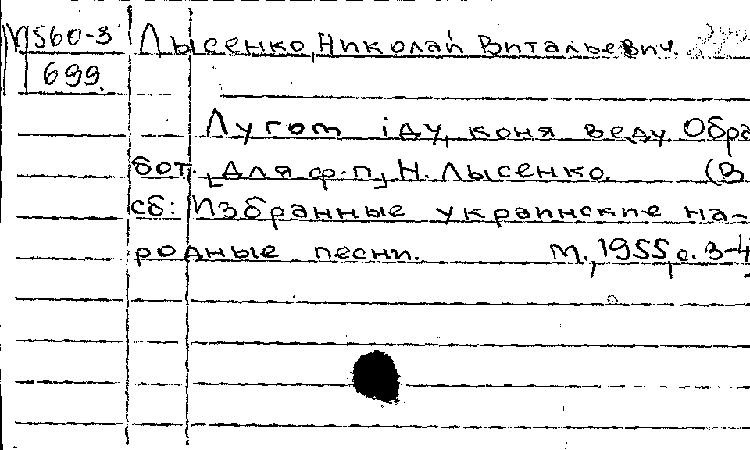 М560-3 Лысенко, Николай Витальевич.
699
Лугом iду, коня веду. Обра
бот. [для ф-п], Н. Лысенко. (В
сб: Избранные украинские на-
родные песни. М., 1955, с. 3-4